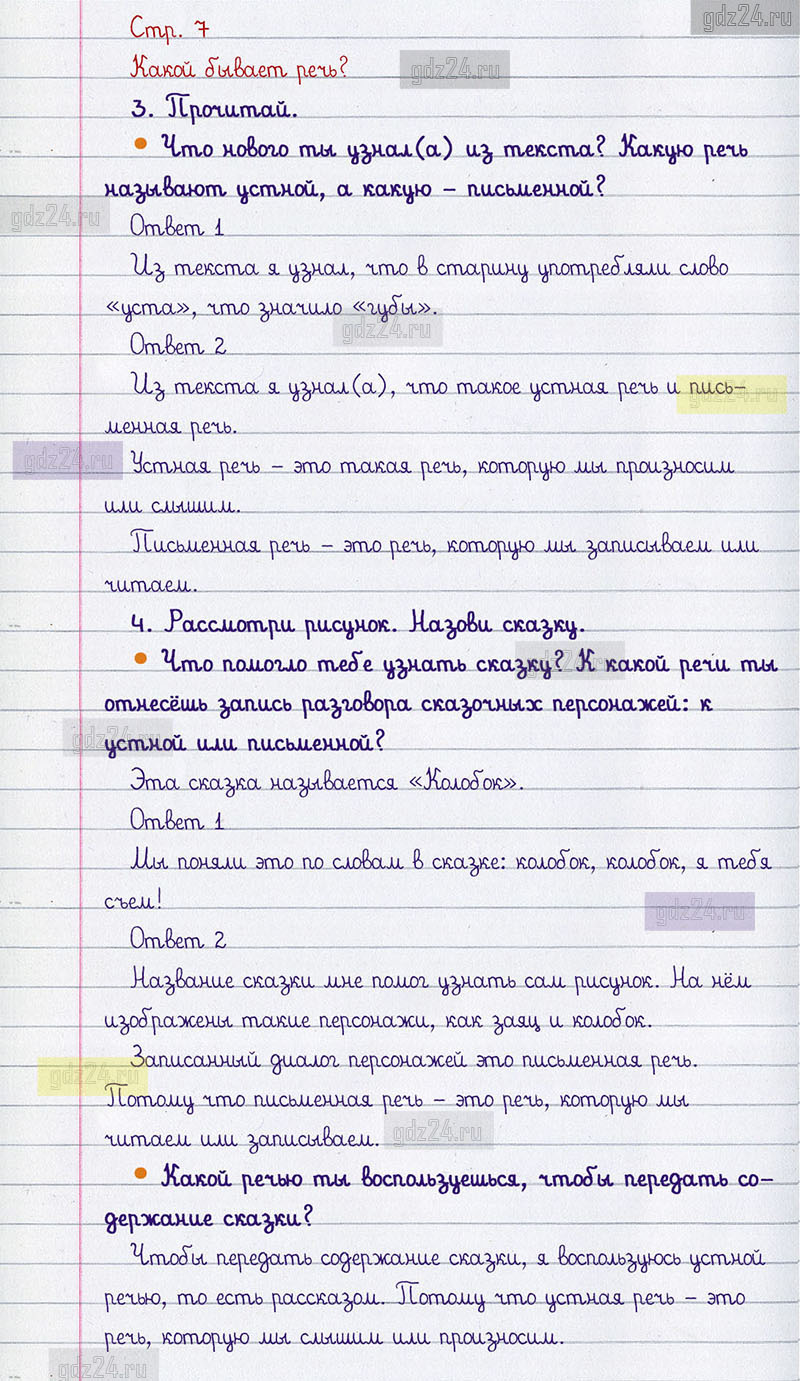 gdz24.ru
Стр. 7
Какой бывает речь?
gdz24.ru
3. Прочитай.
• Что нового ты узнал(а) из текста? Какую речь
называют устной, а какую – письменной?
gdz24.ru
Ответ 1
Из текста я узнал, что в старину употребляли слово
«уста», что значило «губы».
gdz24.ru
Ответ 2
Из текста я узнал(а), что такое устная речь и пись-
gdz24.ru
менная речь.
gdz24.ru
Устная речь – это такая речь, которую мы произносим
или слышим.
Письменная речь – это речь, которую мы записываем или
читаем.
4. Рассмотри рисунок. Назови сказку.
• Что помогло тебе узнать сказку? К какой речи ты
gdz24.ru
отнесёшь запись разговора сказочных персонажей: к
устной или письменной?
gdz24.ru
Эта сказка называется «Колобок».
Ответ 1
Мы поняли это по словам в сказке: колобок, колобок, я тебя
съем!
gdz24.ru
Ответ 2
Название сказки мне помог узнать сам рисунок. На нём
изображены такие персонажи, как заяц и колобок.
Записанный диалог персонажей это письменная речь.
gdz24.ru
Потому что письменная речь – это речь, которую мы
читаем или записываем.
gdz24.ru
• Какой речью ты воспользуешься, чтобы передать со-
держание сказки?
Чтобы передать содержание сказки, я воспользуюсь устной
речью, то есть рассказом. Потому что устная речь – это
речь, которую мы слышим или произносим.
gdz24.ru